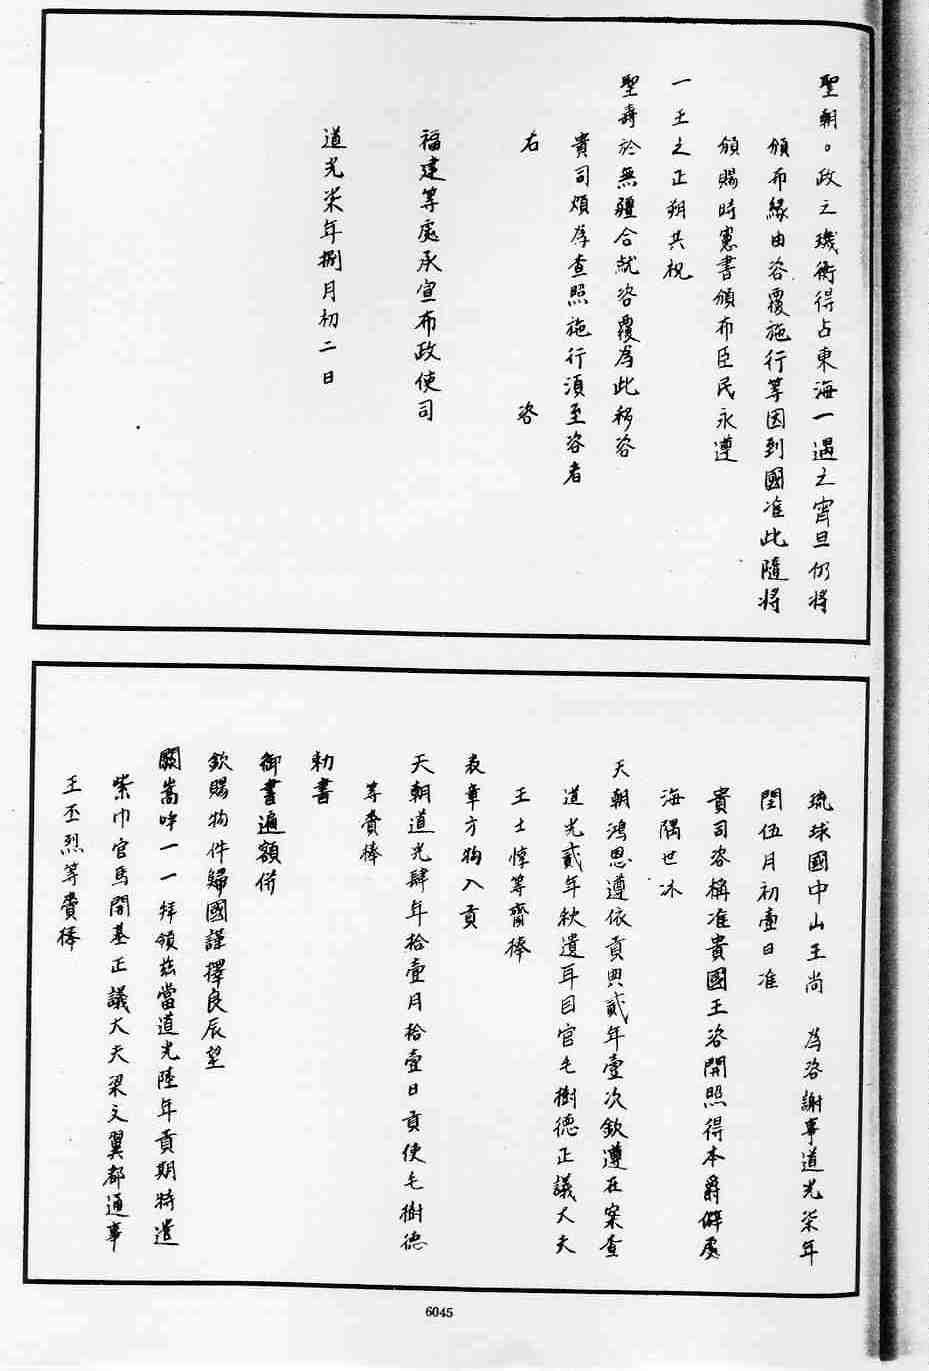 聖朝。政之璣衡得占東海一遇之宵旦仍將
頒布緣由咨覆施行等因到國准此隨將
頒賜時憲書頒布臣民永遵
一王之正朔共祝
聖壽於無疆合就咨覆為此移咨
貴司煩為查照施行須至咨者
右　咨
福建等處承宣布政使司
道光柒年捌月初二日
琉球國中山王尚　為咨謝事道光柒年
閏伍月初壹日准
貴司咨稱准貴國王咨開照得本爵僻處
海隅世沐
天朝鴻恩遵依貢典貳年壹次欽遵在案查
道光貳年秋遣耳目官毛樹德正議大夫
王士惇等齎捧
表章方物入貢
天朝道光肆年拾壹月拾壹日貢使毛樹德
等賫捧
勅書
御書遍額併
欽賜物件歸國謹擇良辰望
闕嵩呼一一拜領茲當道光陸年貢期特遣
紫巾官馬開基正議大夫梁文翼都通事
王丕烈等賫捧
6045